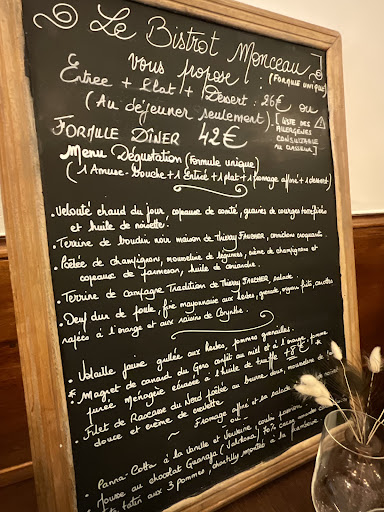 Le Bistrot Monceau
vous propose : (FORMULE UNIQUE)
Entrée + Plat + Dessert : 26€ ou
(Au déjeuner seulement) [LISTE DES ALLERGÈNES CONSULTABLE AU CLASSEUR]
FORMULE DÎNER 42€
Menu Dégustation (Formule unique)
(1 Amuse-bouche + 1 Entrée + 1 plat + 1 fromage affiné + 1 dessert)
• Velouté chaud du jour, copeaux de comté, graines de courges torréfiées
et huile de noisette.
• Terrine de boudin noir maison de Thierry, cornichons croquants.
• Poêlée de champignons, mousseline de légumes, crème de champignons et
copeaux de parmesan, huile de coriandre.
• Terrine de campagne Tradition de Thierry, salade.
• Oeuf dur de poule, fine mayonnaise aux herbes, granola, oignons frits, carottes
rapées à l'orange et aux raisins de Corynthe.
• Volaille jaune grillée aux herbes, pommes grenailles.
* Magret de canard du Gers confit au miel et à l'orange, pomme
purée Ménagère écrasée à l'huile de truffe +8€*
• Filet de Rascasse du Nord poêlée au beurre doux, mousseline de
douce et crème de ciboulette
~ Fromage affiné et sa salade
ou
• Panna Cotta à la vanille et
• Mousse au chocolat Guanaja (Valrhona), 70% cacao
tatin aux 3 pommes, chantilly montée à la framboise